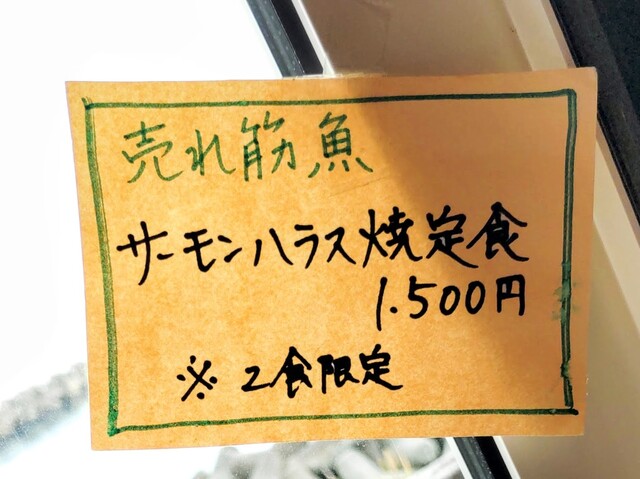 売れ筋魚
サーモンハラス焼定食
1.500円
※ 2食限定